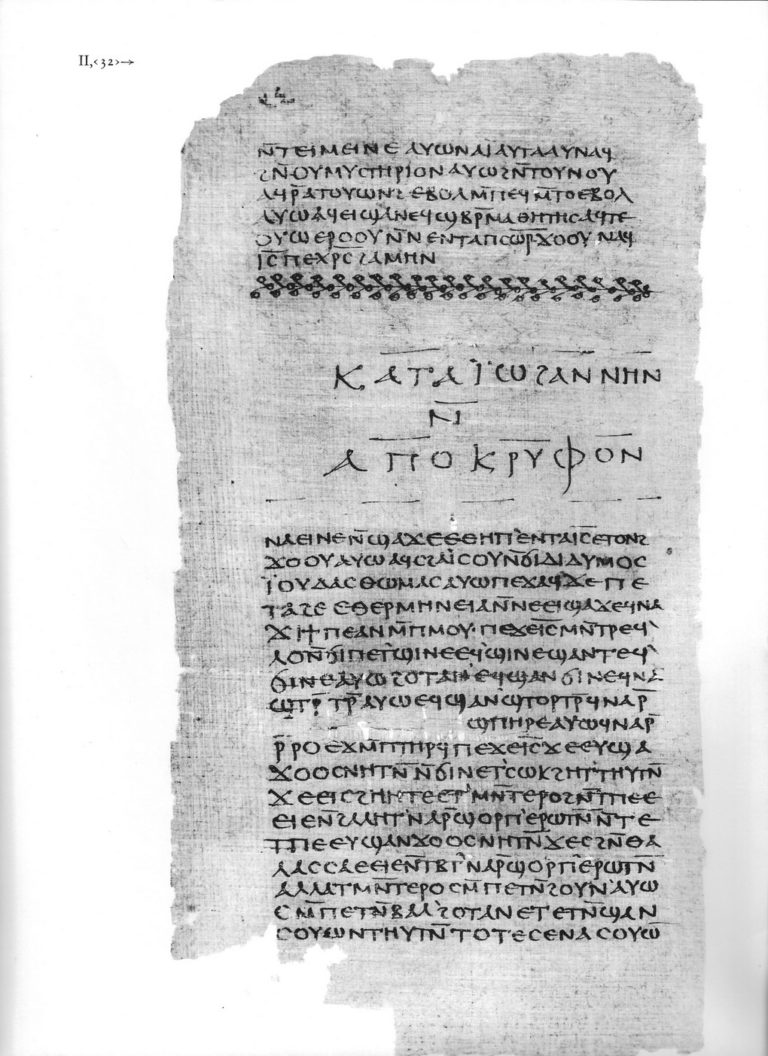 II,‹32›→
ⲗⲃ
ⲛ̄ⲧⲉⲓⲙⲉⲓⲛⲉ ⲁⲩⲱ ⲛⲁⲓ̈ ⲁⲩⲧⲁⲁⲩ ⲛⲁϥ
ϩⲛ̄ ⲟⲩⲙⲩⲥⲧⲏⲣⲓⲟⲛ ⲁⲩⲱ ϩⲛ̄ ⲧⲟⲩⲛⲟⲩ
ⲁϥⲣ̄ ⲁⲧⲟⲩⲱⲛϩ ⲉⲃⲟⲗ ⲙ̄ⲡⲉϥⲙ̄ⲧⲟ ⲉⲃⲟⲗ
ⲁⲩⲱ ⲁϥⲉⲓ ϣⲁ ⲛⲉϥϣⲃⲣ̄ⲙⲁⲑⲏⲧⲏⲥ ⲁϥⲧⲉ
ⲟⲩⲱ ⲉⲣⲟⲟⲩ ⲛ̄ⲛⲉⲛⲧⲁ ⲡⲥⲱ̄ⲣ̄ ϫⲟⲟⲩ ⲛⲁϥ
ⲓ̄ⲥ̄ ⲡⲉⲭ̄ⲣ̄ⲥ̄ ϩⲁⲙⲏⲛ
ⲕⲁⲧⲁ ⲓ̈ⲱϩⲁⲛⲛⲏⲛ
ⲛ̄
ⲁⲡⲟⲕⲣⲩⲫⲟⲛ
ⲛⲁⲉⲓ ⲛⲉ ⲛ̄ϣⲁϫⲉ ⲉⲑⲏⲡ ⲉⲛⲧⲁ ⲓ̄ⲥ̄ ⲉⲧⲟⲛϩ
ϫⲟⲟⲩ ⲁⲩⲱ ⲁϥⲥϩⲁⲓ̈ⲥⲟⲩ ⲛ̄ϭⲓ ⲇⲓⲇⲩⲙⲟⲥ
ⲓ̈ⲟⲩⲇⲁⲥ ⲑⲱⲙⲁⲥ ⲁⲩⲱ ⲡⲉϫⲁϥ ϫⲉ ⲡⲉ
ⲧⲁϩⲉ ⲉⲑⲉⲣⲙⲏⲛⲉⲓⲁ ⲛ̄ⲛⲉⲉⲓϣⲁϫⲉ ϥⲛⲁ
ϫⲓ ϯⲡⲉ ⲁⲛ ⲙ̄ⲡⲙⲟⲩ ⲡⲉϫⲉ ⲓ̄ⲥ̄ ⲙⲛ̄ⲧⲣⲉϥ
ⲗⲟ ⲛ̄ϭⲓ ⲡⲉⲧϣⲓⲛⲉ ⲉϥϣⲓⲛⲉ ϣⲁⲛⲧⲉϥ
ϭⲓⲛⲉ ⲁⲩⲱ ϩⲟⲧⲁⲛ ⲉϥϣⲁⲛϭⲓⲛⲉ ϥⲛⲁ
ϣⲧⲣ̄ⲧⲣ̄ ⲁⲩⲱ ⲉϥϣⲁⲛϣⲧⲟⲣⲧⲣ̄ ϥⲛⲁⲣ̄
ϣⲡⲏⲣⲉ ⲁⲩⲱ ϥⲛⲁⲣ̄
ⲣ̄ⲣⲟ ⲉϫⲙ̄ ⲡⲧⲏⲣϥ ⲡⲉϫⲉ ⲓ̄ⲥ̄ ϫⲉ ⲉⲩϣⲁ
ϫⲟⲟⲥ ⲛⲏⲧⲛ̄ ⲛ̄ϭⲓ ⲛⲉⲧⲥⲱⲕ ϩⲏⲧ ⲧⲏⲩⲧⲛ̄
ϫⲉ ⲉⲓⲥϩⲏⲏⲧⲉ ⲉⲧⲙⲛ̄ⲧⲉⲣⲟ ϩⲛ̄ ⲧⲡⲉ ⲉ
ⲉⲓⲉ ⲛ̄ϩⲁⲗⲏⲧ ⲛⲁⲣ̄ ϣⲟⲣⲡ ⲉⲣⲱⲧⲛ̄ ⲛ̄ⲧⲉ
ⲧⲡⲉ ⲉⲩϣⲁⲛϫⲟⲟⲥ ⲛⲏⲧⲛ̄ ϫⲉ ⲥϩⲛ̄ ⲑⲁ
ⲗⲁⲥⲥⲁ ⲉⲉⲓⲉ ⲛ̄ⲧⲃⲧ ⲛⲁⲣ̄ ϣⲟⲣⲡ ⲉⲣⲱⲧⲛ̄
ⲁⲗⲗⲁ ⲧⲙⲛ̄ⲧⲉⲣⲟ ⲥⲙ̄ⲡⲉⲧⲛ̄ϩⲟⲩⲛ ⲁⲩⲱ
ⲥⲙ̄ⲡⲉⲧⲛ̄ⲃⲁⲗ ϩⲟⲧⲁⲛ ⲉⲧⲉⲧⲛ̄ϣⲁⲛ
ⲥⲟⲩⲱⲛ ⲧⲏⲩⲧⲛ̄ ⲧⲟⲧⲉ ⲥⲉⲛⲁⲥⲟⲩⲱ